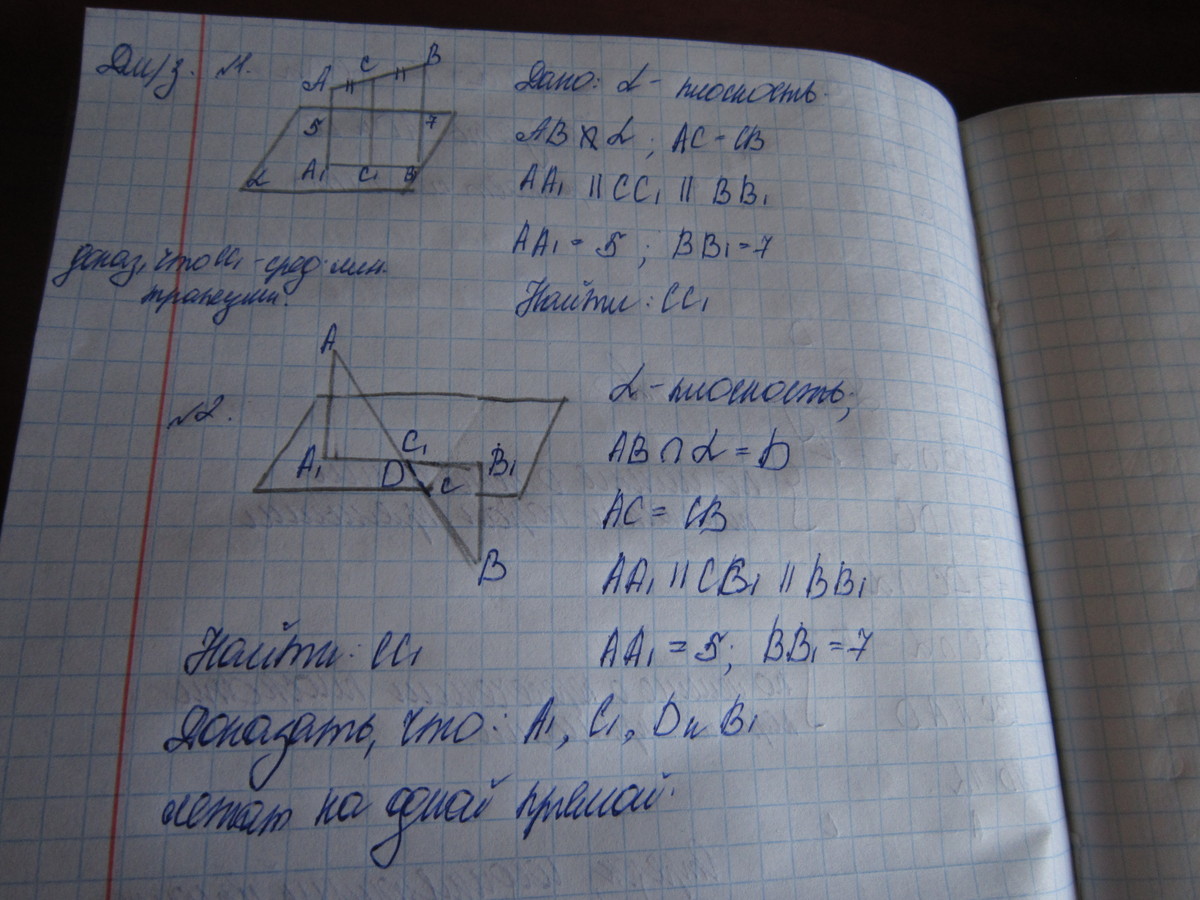 Дом/з. №1.
A C B
5 7
α A₁ C₁ B₁
Дано: α - плоскость.
AB ∩ α ; AC = CB
AA₁ || CC₁ || BB₁
AA₁ = 5 ; BB₁ = 7
Найти: CC₁
доказ, что CC₁ - сред. лин.
трапеции.
№2.
A
A₁ D C₁ C B₁
B
α - плоскость;
AB ∩ α = D
AC = CB
AA₁ || CC₁ || BB₁
AA₁ = 5; BB₁ = 7
Найти: CC₁
Доказать, что: A₁, C₁, D и B₁
лежат на одной прямой.